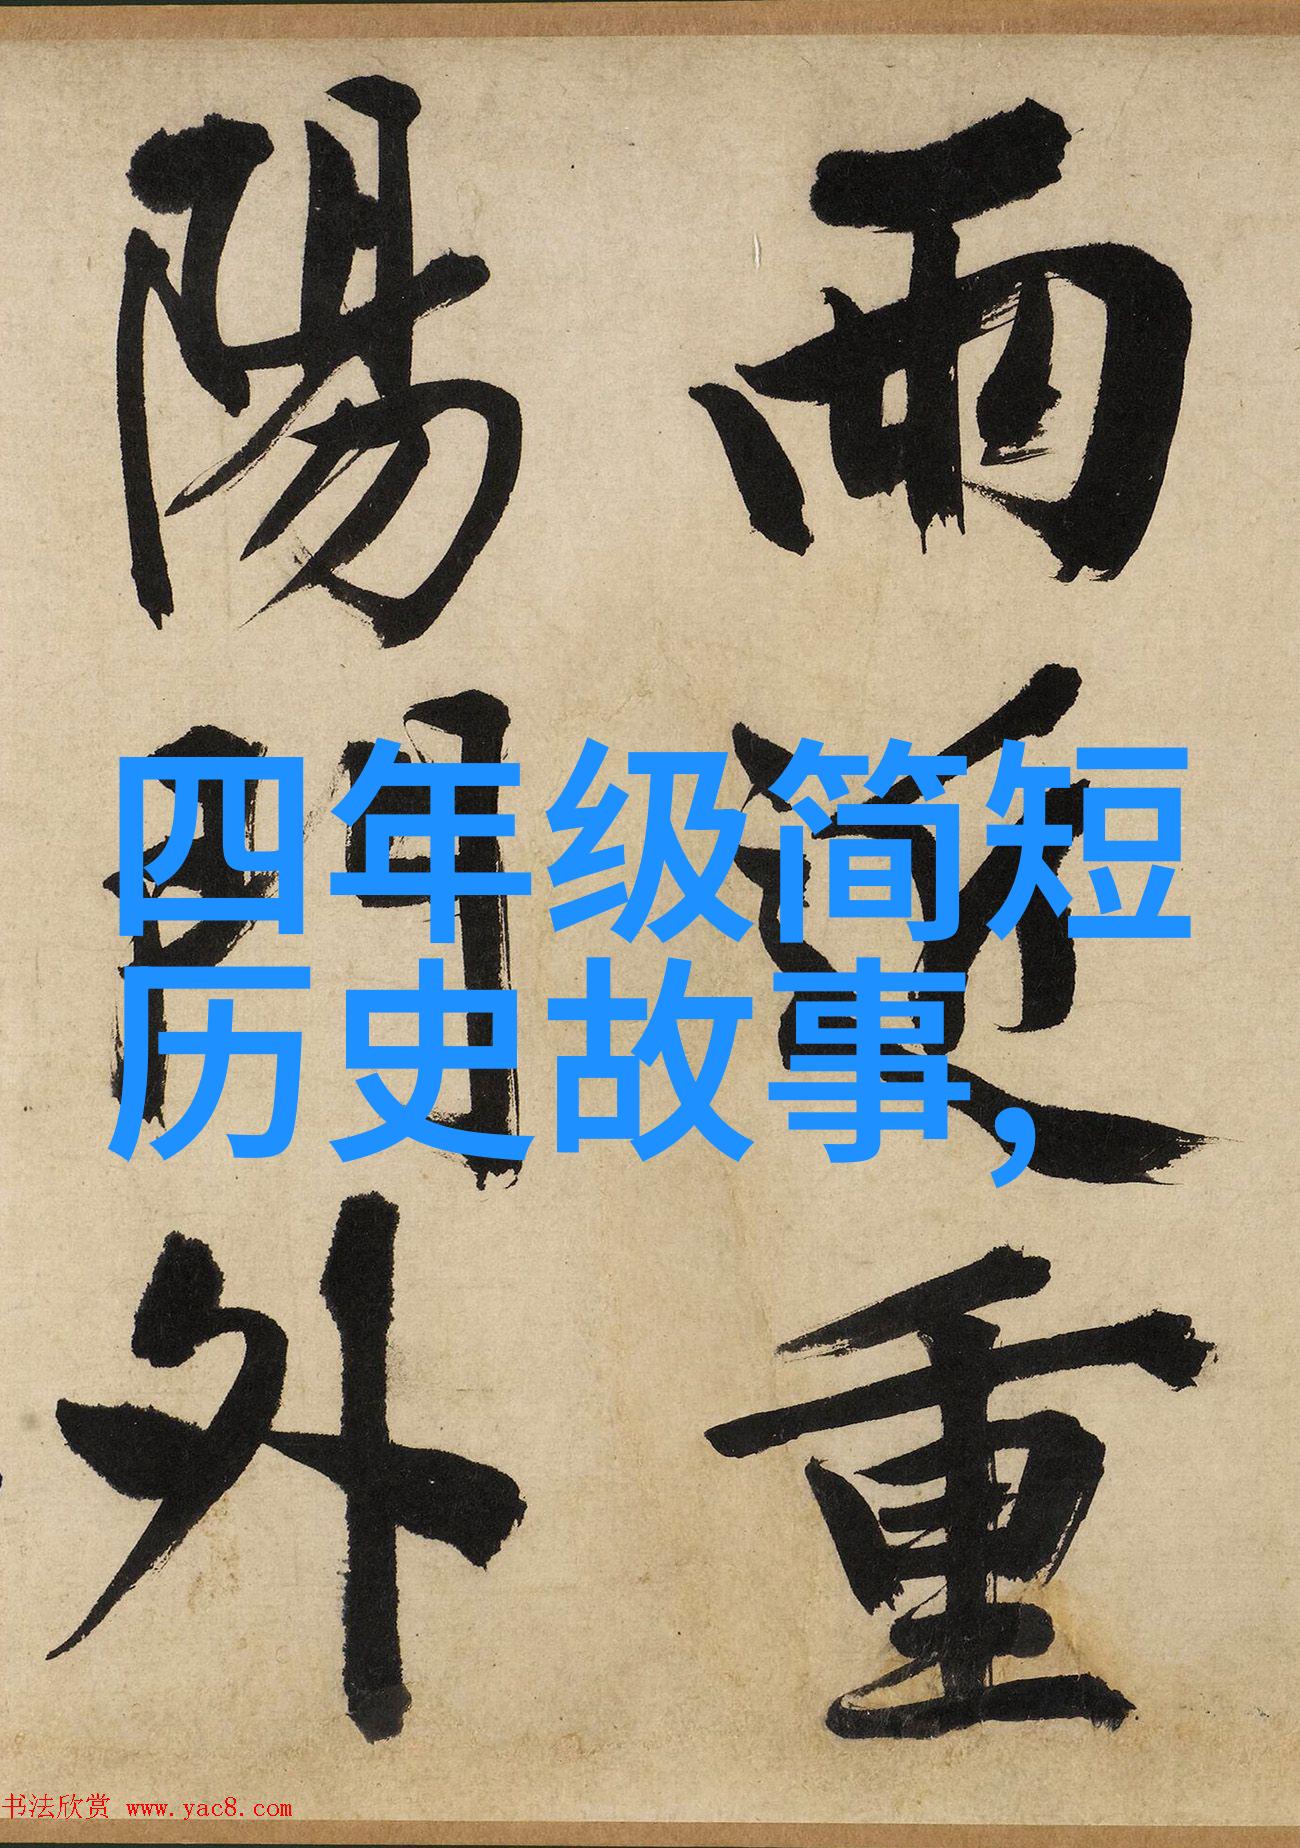 雨
逐
重
陽
門
外
四年级简短
历史故事，
书法欣赏 www.yac8.com